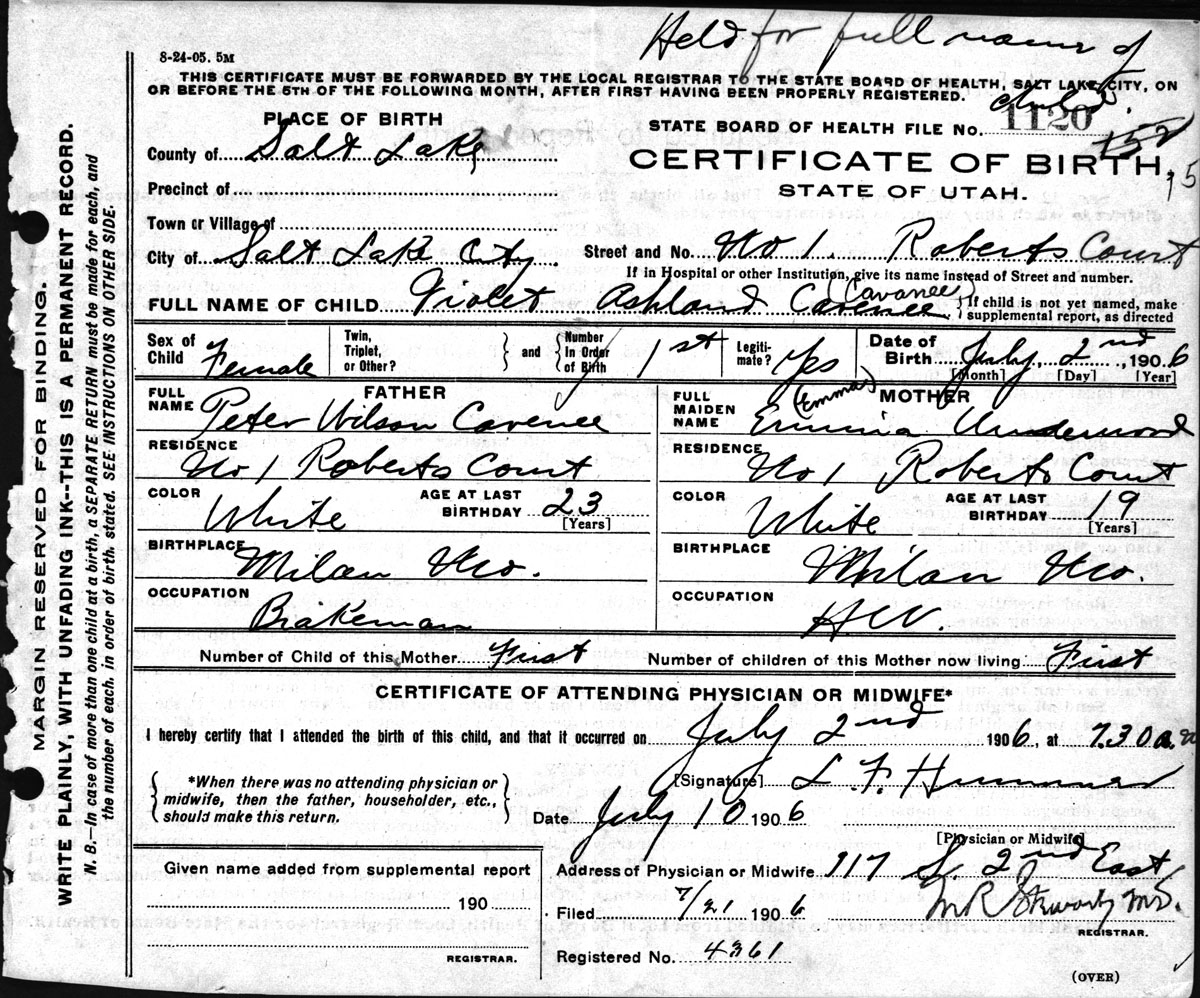 Held for full name of
child.
8-24-05. 5M
THIS CERTIFICATE MUST BE FORWARDED BY THE LOCAL REGISTRAR TO THE STATE BOARD OF HEALTH, SALT LAKE CITY, ON
OR BEFORE THE 5TH OF THE FOLLOWING MONTH, AFTER FIRST HAVING BEEN PROPERLY REGISTERED.
PLACE OF BIRTH
STATE BOARD OF HEALTH FILE No. 1120
152
County of Salt Lake
CERTIFICATE OF BIRTH,
STATE OF UTAH.
Precinct of
Town or Village of
City of Salt Lake City
Street and No. No 1. Roberts Court
If in Hospital or other Institution, give its name instead of Street and number.
FULL NAME OF CHILD Violet Ashland Cavenee (Cavanee)
If child is not yet named, make
supplemental report, as directed
Sex of Child Female
Twin, Triplet, or Other?
and
Number In Order of Birth 1st
Legiti-mate? Yes
Date of Birth July 2nd 1906
[Month] [Day] [Year]
FATHER
FULL NAME Peter Wilson Cavenee
RESIDENCE No 1 Roberts Court
COLOR White
AGE AT LAST BIRTHDAY 23
[Years]
BIRTHPLACE Milan Mo.
OCCUPATION Brakeman
MOTHER
FULL MAIDEN NAME (Emma) Emmia Underwood
RESIDENCE No 1 Roberts Court
COLOR White
AGE AT LAST BIRTHDAY 19
[Years]
BIRTHPLACE Milan Mo.
OCCUPATION HW.
Number of Child of this Mother First
Number of children of this Mother now living First
CERTIFICATE OF ATTENDING PHYSICIAN OR MIDWIFE*
I hereby certify that I attended the birth of this child, and that it occurred on July 2nd 1906, at 7.30 a.m
*When there was no attending physician or
midwife, then the father, householder, etc.,
should make this return.
[Signature] L. F. Hummer
Date July 10 1906
[Physician or Midwife]
Given name added from supplemental report
190
REGISTRAR.
Address of Physician or Midwife 917 S. 2nd East
Filed 7/21 1906
M R Stewart MD.
REGISTRAR.
Registered No. 4361
(OVER)
MARGIN RESERVED FOR BINDING.
WRITE PLAINLY, WITH UNFADING INK--THIS IS A PERMANENT RECORD.
N. B.--In case of more than one child at a birth, a SEPARATE RETURN must be made for each, and
the number of each, in order of birth, stated. SEE INSTRUCTIONS ON OTHER SIDE.